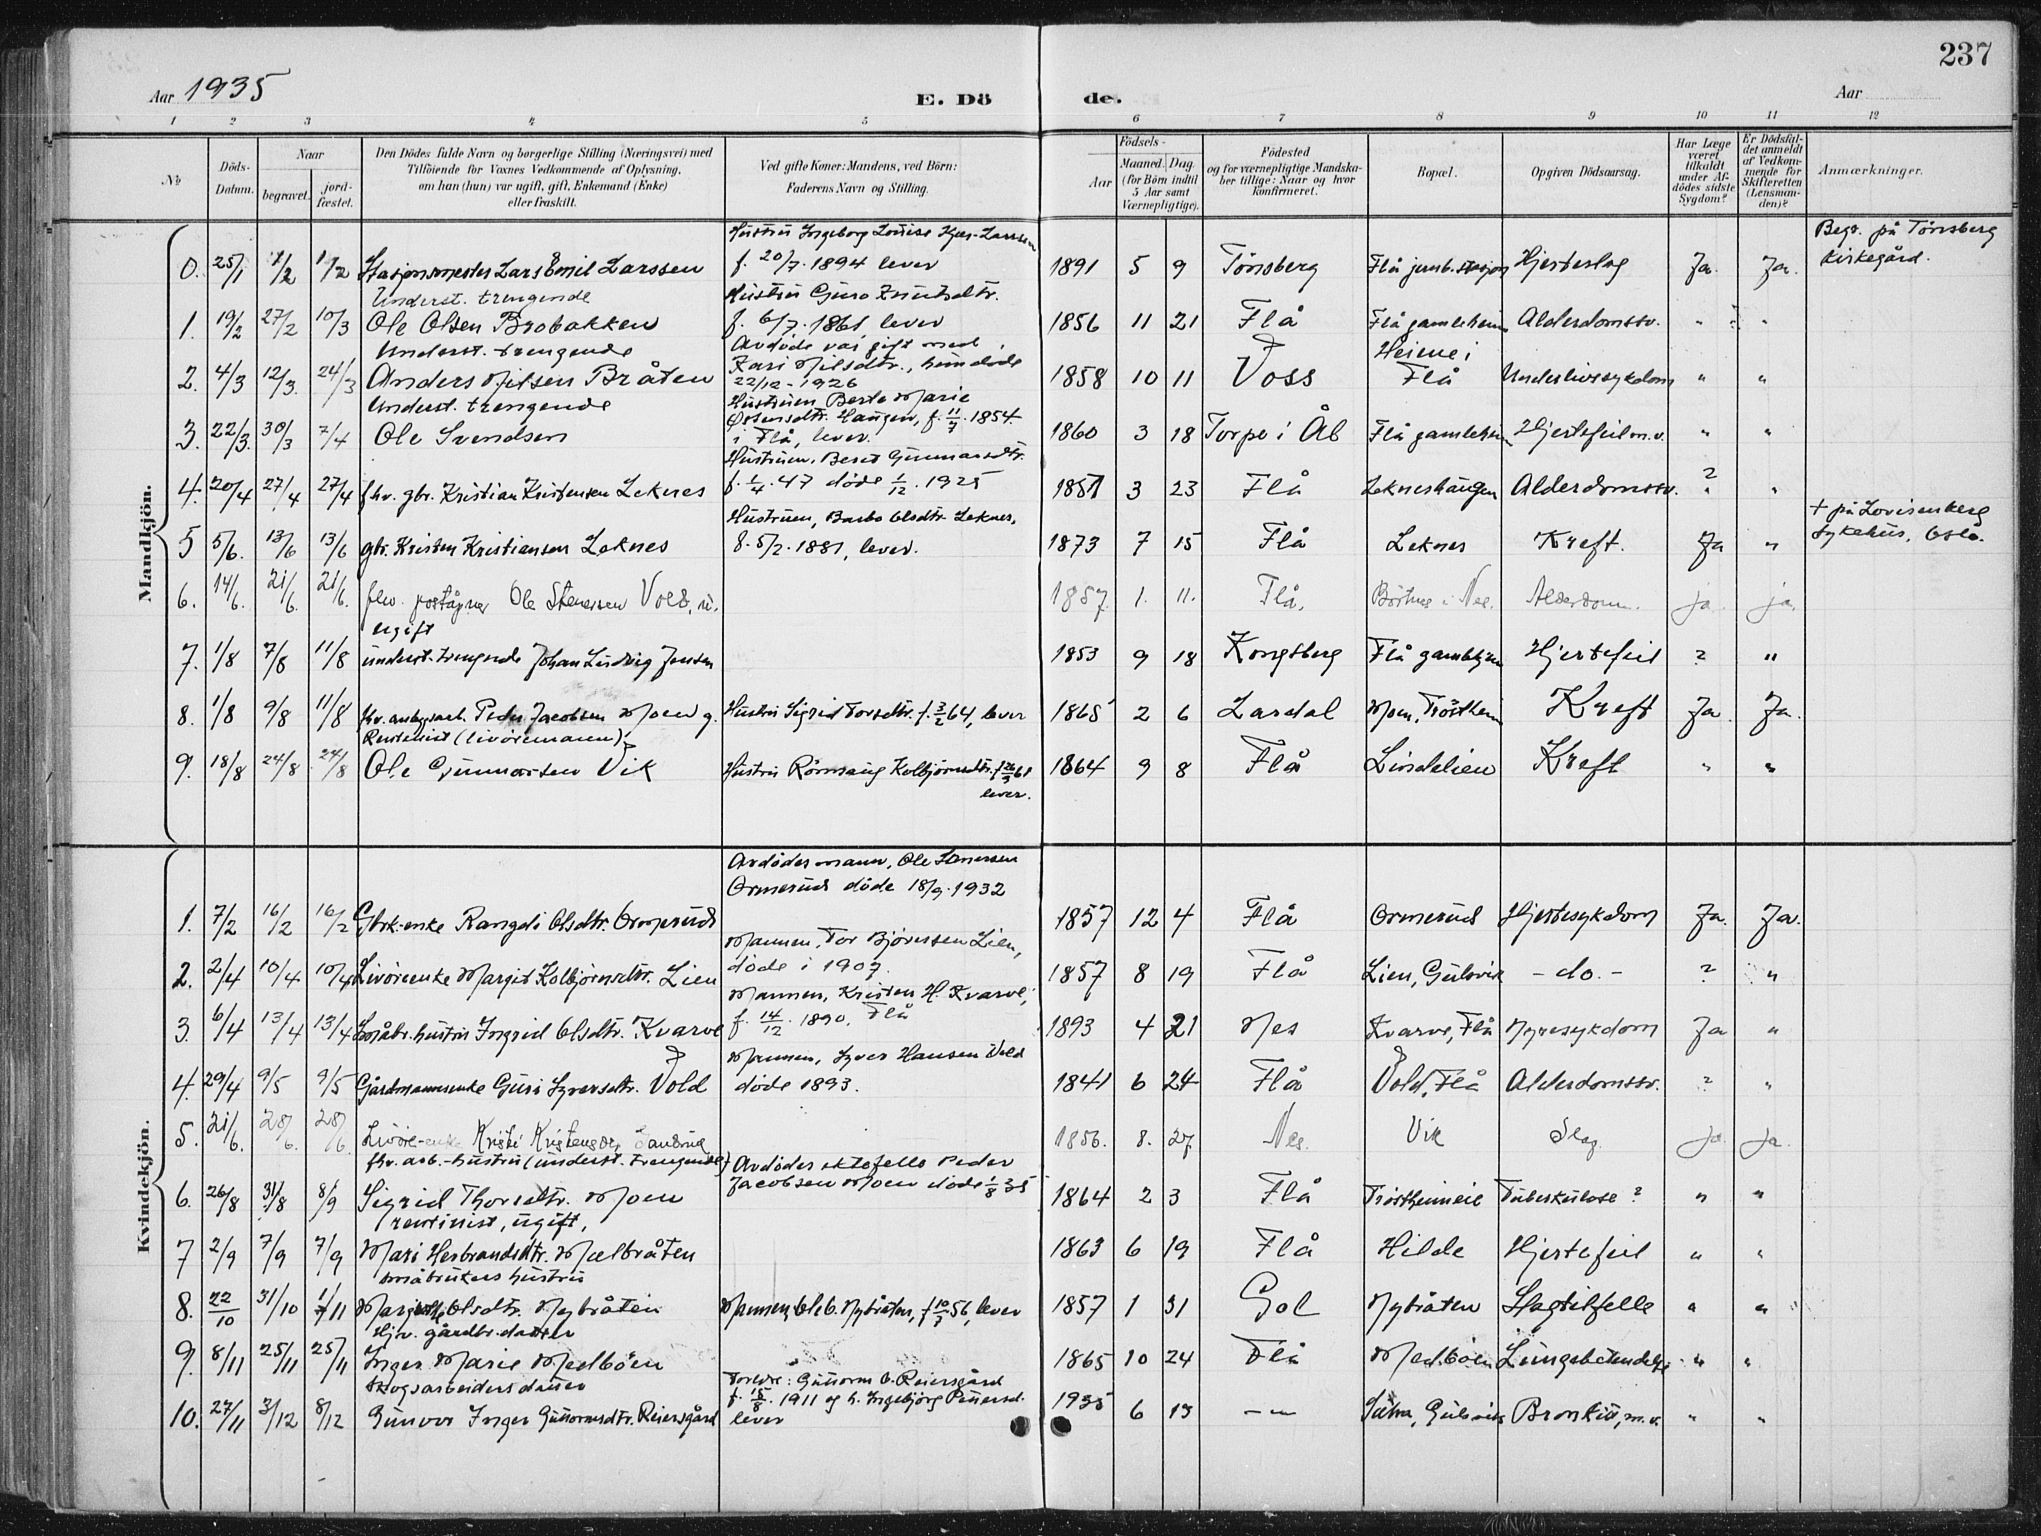 237
Aar 1935
E. Dö
de.
Aar
1 2 3 4 5 6 7 8 9 10 11 12
No
Döds-Datum.
Naar
begravet.
jord-fæstet.
Den Dödes fulde Navn og borgerlige Stilling (Næringsvei) med
Tilföiende for Voxnes Vedkommende af Oplysning,
om han (hun) var ugift, gift, Enkemand (Enke)
eller fraskilt.
Ved gifte Koner: Mandens, ved Börn:
Faderens Navn og Stilling.
Födsels-
Aar
Maaned. Dag.
(for Börn indtil
5 Aar samt
Værnepligtige).
Födested
og for værnepligtige Mandska-
ber tillige: Naar og hvor
konfirmeret.
Bopæl.
Opgiven Dödsaarsag.
Har Læge
været
tilkaldt
under Af-
dödes sidste
Sygdom?
Er Dödsfal-
det anmeldt
af Vedkom-
mende for
Skifteretten
(Lensman-
den)?
Anmærkninger.
Mandkjön.
Hustru Ingeborg Louise Larssen
0. 25/1 1/2 1/2 Stasjonsmester Lars Emil Larssen f. 20/7 1894 lever 1891 5 9 Tönsberg Flå jernb.stasjon Hjerteslag Ja. Ja. Begr. på Tönsberg
kirkegård.
Underst. trengende Hustru Guro Knutsdtr.
1. 19/2 27/2 10/3 Ole Olsen Brobakken f. 6/7 1861 lever 1856 11 21 Flå Flå gamleheim Alderdomssv. " "
Underst. trengende Avdöde var gift med
2. 4/3 12/3 24/3 Anders Nilsen Bråten Kari Nilsdtr., hun döde
22/12 - 1926 1858 10 11 Voss Heime i
Flå Underlivssykdom " "
Underst. trengende Hustruen Berte Marie
3. 22/3 30/3 7/4 Ole Svendsen Haugen, f. 1854
i Flå, lever. 1860 3 18 Torpo i Ål Flå gamleheim Hjertefeil m.v. " "
Hustruen, Beret Gunnarsdtr.
4. 20/4 27/4 27/4 fhv. gbr. Kristian Kristensen Leknes f. 1/4 47 döde 1/12 1925 1851 3 23 Flå Lekneshaugen Alderdomssv. ? "
Hustruen, Barbo Olsdtr. Leknes,
5 5/6 13/6 13/6 gbr. Kristen Kristiansen Leknes f. 5/2 1881, lever. 1873 7 15 Flå Leknes Kreft. Ja " + på Lovisenberg
sykehus, Oslo.
6. 14/6 21/6 21/6 fhv. poståpner Ole Stenersen Vold, 1857 1. 11. Flå. i Nes. Alderdom. ja. ja.
ugift
7. 1/8 7/8 11/8 underst. trengende Johan Ludvig Jensen 1853 9 18 Kongsberg Flå gamlehjem Hjertefeil ? "
8. 1/8 9/8 11/8 fhv. Peder Jacobsen Moen g. Hustru Sigrid Torsdtr. f. 3/2 64, lever 1865 2 6 Lardal Moen, Tröstheim Kreft Ja Ja.
Rentenist (livöremann)
9. 18/8 24/8 24/8 Ole Gunnarsen Vik Hustru Kolbjörnsdtr. 1864 9 8 Flå Lindelien Kreft " "
lever.
Kvindekjön.
Avdödes mann, Ole Stenersen
Ormerud döde 18/9 1932
1. 7/2 16/2 16/2 Gbrk-enke Rangdi Olsdtr. Ormerud 1857 12 4 Flå Ormerud Hjertesykdom Ja. Ja.
Mannen, Tor Björnsen Lien,
2. 2/4 10/4 10/4 Livöreenke Margit Kolbjörnsdtr. Lien döde i 1907. 1857 8 19 Flå Lien, Gulsvik - do. - ? "
Mannen, Kristen H. Kvarve,
3. 6/4 13/4 13/4 Småbr. hustru Ingrid Olsdtr. Kvarve f. 14/12 1890, Flå 1893 4 21 Nes Kvarve, Flå Nyresykdom Ja "
Mannen, Syver Hansen Vold
4. 29/4 9/5 9/5 Gårdmannsenke Guri Syversdtr. Vold döde 1893. 1841 6 24 Flå Vold, Flå Alderdomssv. ? "
5. 21/6 28/6 28/6 Livöre-enke 1856. 8. 27 Nes. Vik Slag ja ja.
fhv. arb.-hustru (underst. trengende) Avdödes ektefelle Peder
6. 26/8 31/8 8/9 Sigrid Thorsdtr. Moen Jacobsen Moen döde 1/8 35 1864 2 3 Flå Tröstheimeie Tuberkulose? " "
rentenist, ugift,
7 2/9 7/9 7/9 Mari Herbrandsdtr. Mælbråten 1863 6 19 Flå Hilde Hjertefeil " "
småbrukers hustru
8. 22/10 31/10 1/11 Olsdtr. Nybråten Mannen, Ole O. Nybråten, f. 56, lever 1857 1 31 Gol Nybråten Slagtilfelle " "
Hjv. gårdbr. datter
9. 8/11 25/11 25/11 Inger Marie Medböen 1865 10 24 Flå Medböen Lungebetendelse " "
skogsarbeiders datter Foreldre: Guttorm O. Reiersgård
10. 27/11 3/12 8/12 Gunvor Inger Guttormsdtr. Reiersgård f. 15/8 1911 og h. Ingebjörg
lever 1935 6 13 -"- Gulsvik Bronkitt, m.v. " "